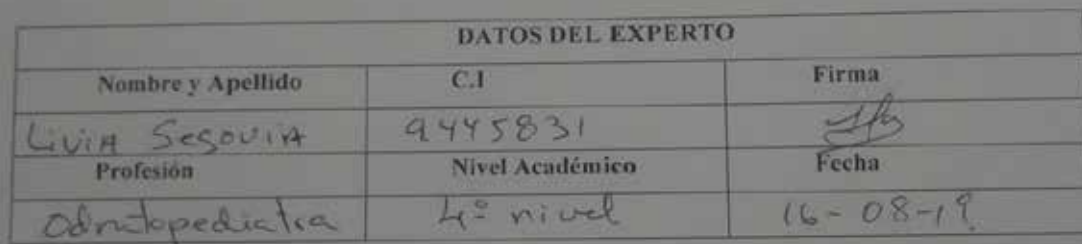 DATOS DEL EXPERTO
Nombre y Apellido C.I Firma
Livia Segovia 9445831
Profesión Nivel Académico Fecha
Odontopediatra 4º nivel 16-08-19